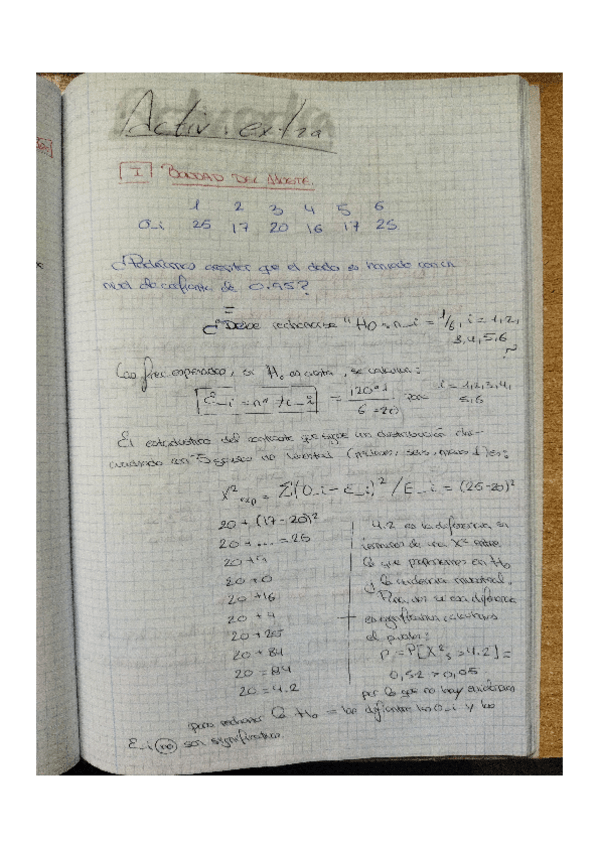 Activ. extra
I BONDAD DEL AJUSTE.
1 2 3 4 5 6
O_i 25 17 20 16 17 25
¿Podríamos aceptar que el dado es honrado con un
nivel de confianza de 0.95?
=
¿Debe rechazarse "H0 = π_i = 1/6, i = 1,2,
3,4,5,6
?
Las frec esperadas, si H0 es cierta, se calculan:
E_i = n* π_i = 120*1 / 6 = 20 para i = 1,2,3,4,
5,6
El estadístico del contraste que sigue una distribución chi-
cuadrado con 5 grados de libertad (, seis, menos 1) es:
X²exp = Σ(O_i - E_i)² / E_i = (25-20)²
20 + (17-20)²
20 + ... = 25
20 + 9
20 + 0
20 + 16
20 + 4
20 + 25
20 + 84
20 = 84
20 = 4.2
4.2 es la diferencia en
términos de una X² entre
lo que proponemos en H0
y la evidencia muestral.
Para ver si esa diferencia
es significativa calculamos
el p valor:
P = P[X²5 = 4.2] =
0,52 > 0,05
por lo que no hay evidencias
para rechazar la H0 = las diferencias O_i y las
E_i no son significativas.